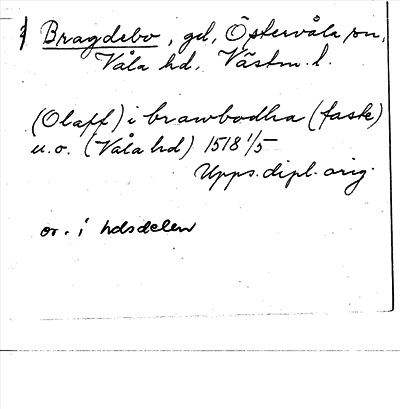 Bragdebo, gd, Östervåla sn,
Våla hd. Västm. l.
(Olaff) i brawbodha (faste)
u. o. (Våla hd) 1518 1/5
Upps. dipl. orig.
or. i hdsdelen